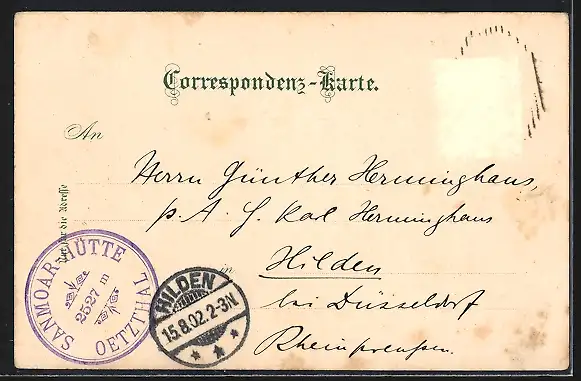 Correspondenz-Karte.
An
Herrn Günther Herminghaus,
p. A. H. Karl Herminghaus
in Hilden
bei Düsseldorf
Rheinpreußen.
Nur für die Adresse
SANMOAR-HÜTTE
2527 m
OETZTHAL
HILDEN
15.8.02.2-3N